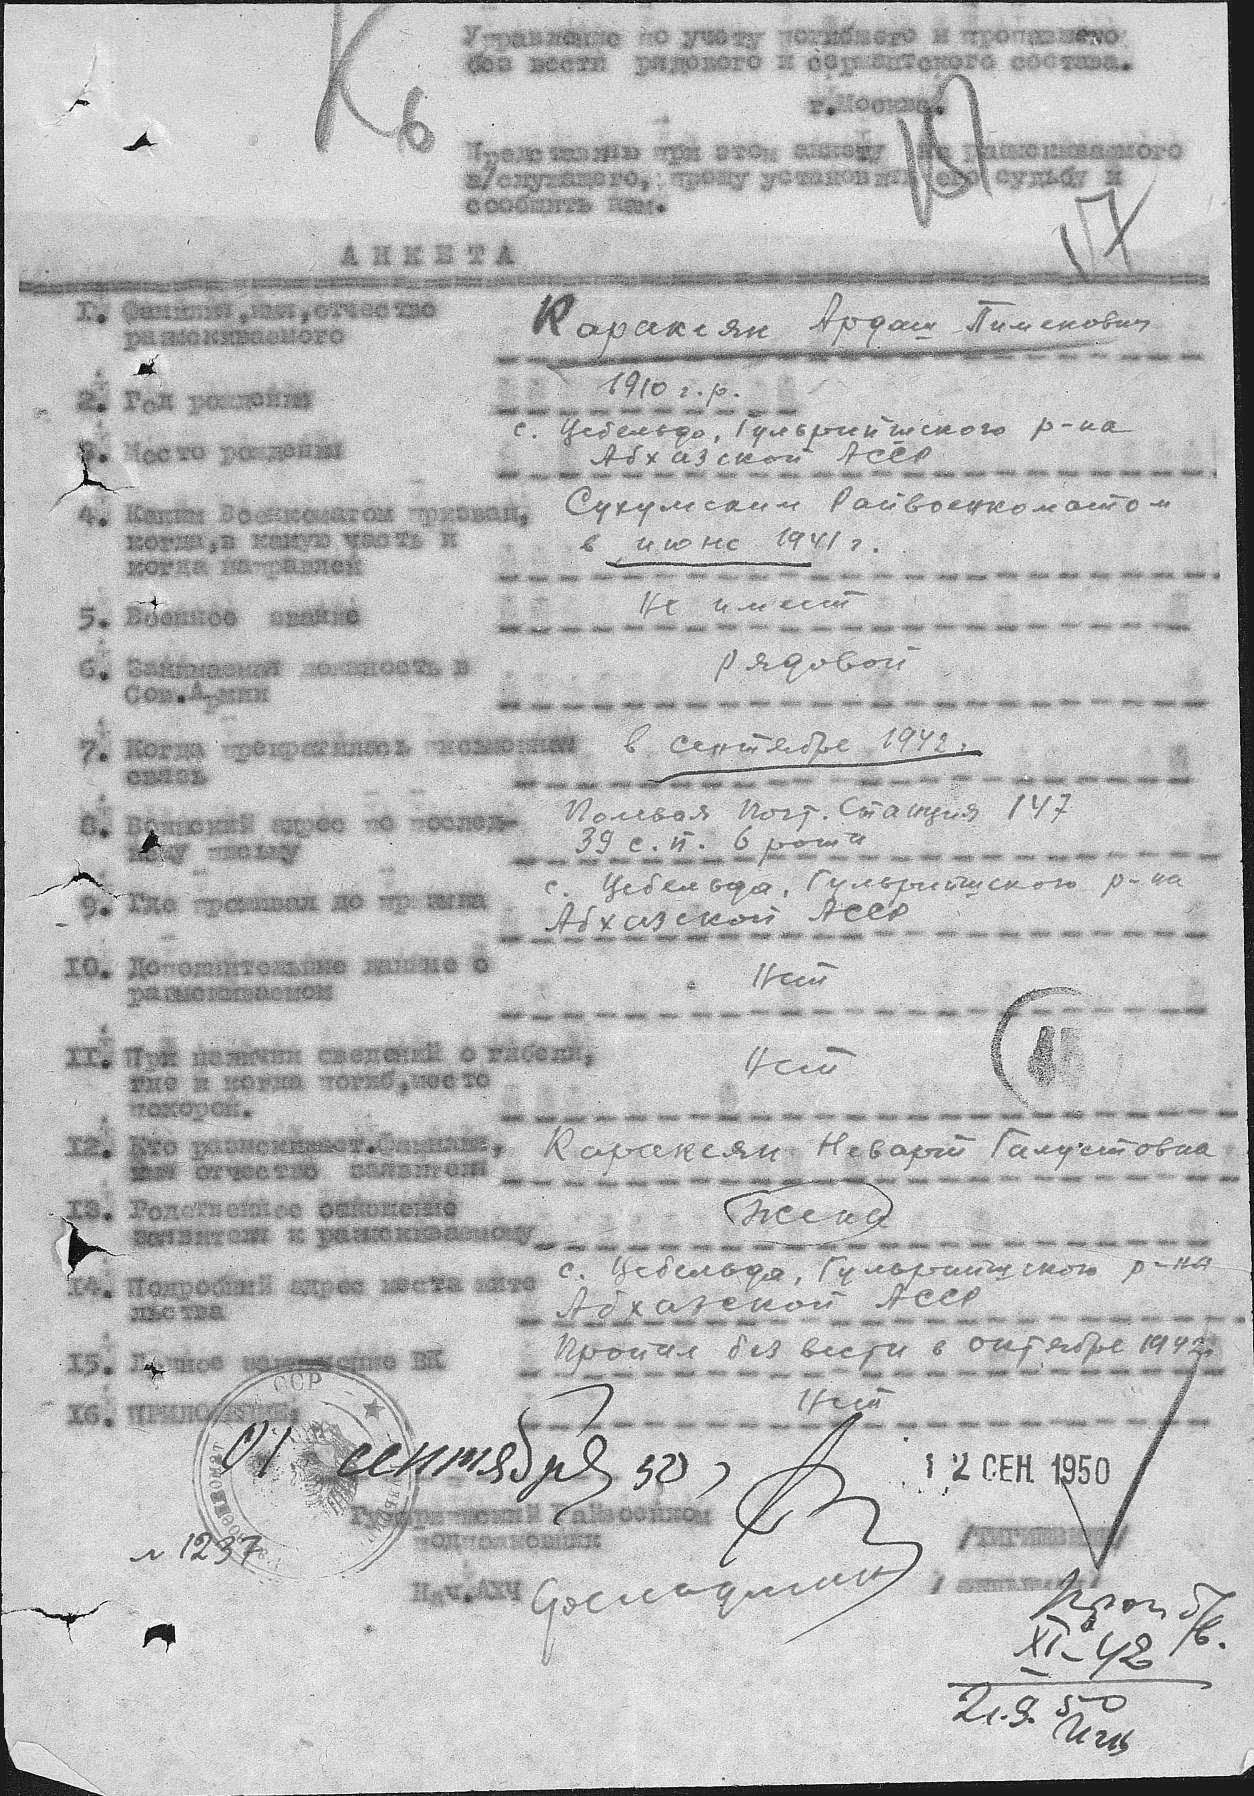 К 6
Управление по учету погибшего и пропавшего
без вести рядового и сержантского состава.
г.Москва.
Представляю при этом анкету на разыскиваемого
в/служащего, прошу установить его судьбу и
сообщить нам.
17
АНКЕТА
1. Фамилия,имя,отчество Каракеян Ардаш Пименович
разыскиваемого
2. Год рождения 1910 г.р.
3. Место рождения с. Цебельда, Гульрипшского р-на
Абхазской АССР
4. Каким Военкоматом призван, Сухумским Райвоенкоматом
когда,в какую часть и в июне 1941 г.
когда направлен
5. Военное звание Не имеет
6. Занимаемая должность в рядовой
Сов.Армии
7. Когда прекратилась письменная в сентябре 1942.
связь
8. Воинский адрес по послед- Полевая Почт. Станция 147
нему письму 39 с.п. 6 рота
9. Где проживал до призыва с. Цебельда, Гульрипшского р-на
Абхазской АССР
10. Дополнительные данные о Нет
разыскиваемом
11. При наличии сведений о гибели, Нет
где и когда погиб,место
похорон.
12. Кто разыскивает.Фамилия, Каракеян Неварт Галустовна
имя отчество заявителя
13. Родственное отношение Жена
заявителя к разыскиваемому
14. Подробный адрес места жите с. Цебельда, Гульрипшского р-на
льства Абхазской АССР
15. Личное заключение ВК Пропал без вести в октябре 1942г.
16. ПРИЛОЖЕНИЕ: Нет
ССР
01 сентября 50
12 СЕН. 1950
Гульрипшский Райвоенком
подполковник
№ 1237
Нач.АХЧ
проп б/в.
XI-42
21.9.50